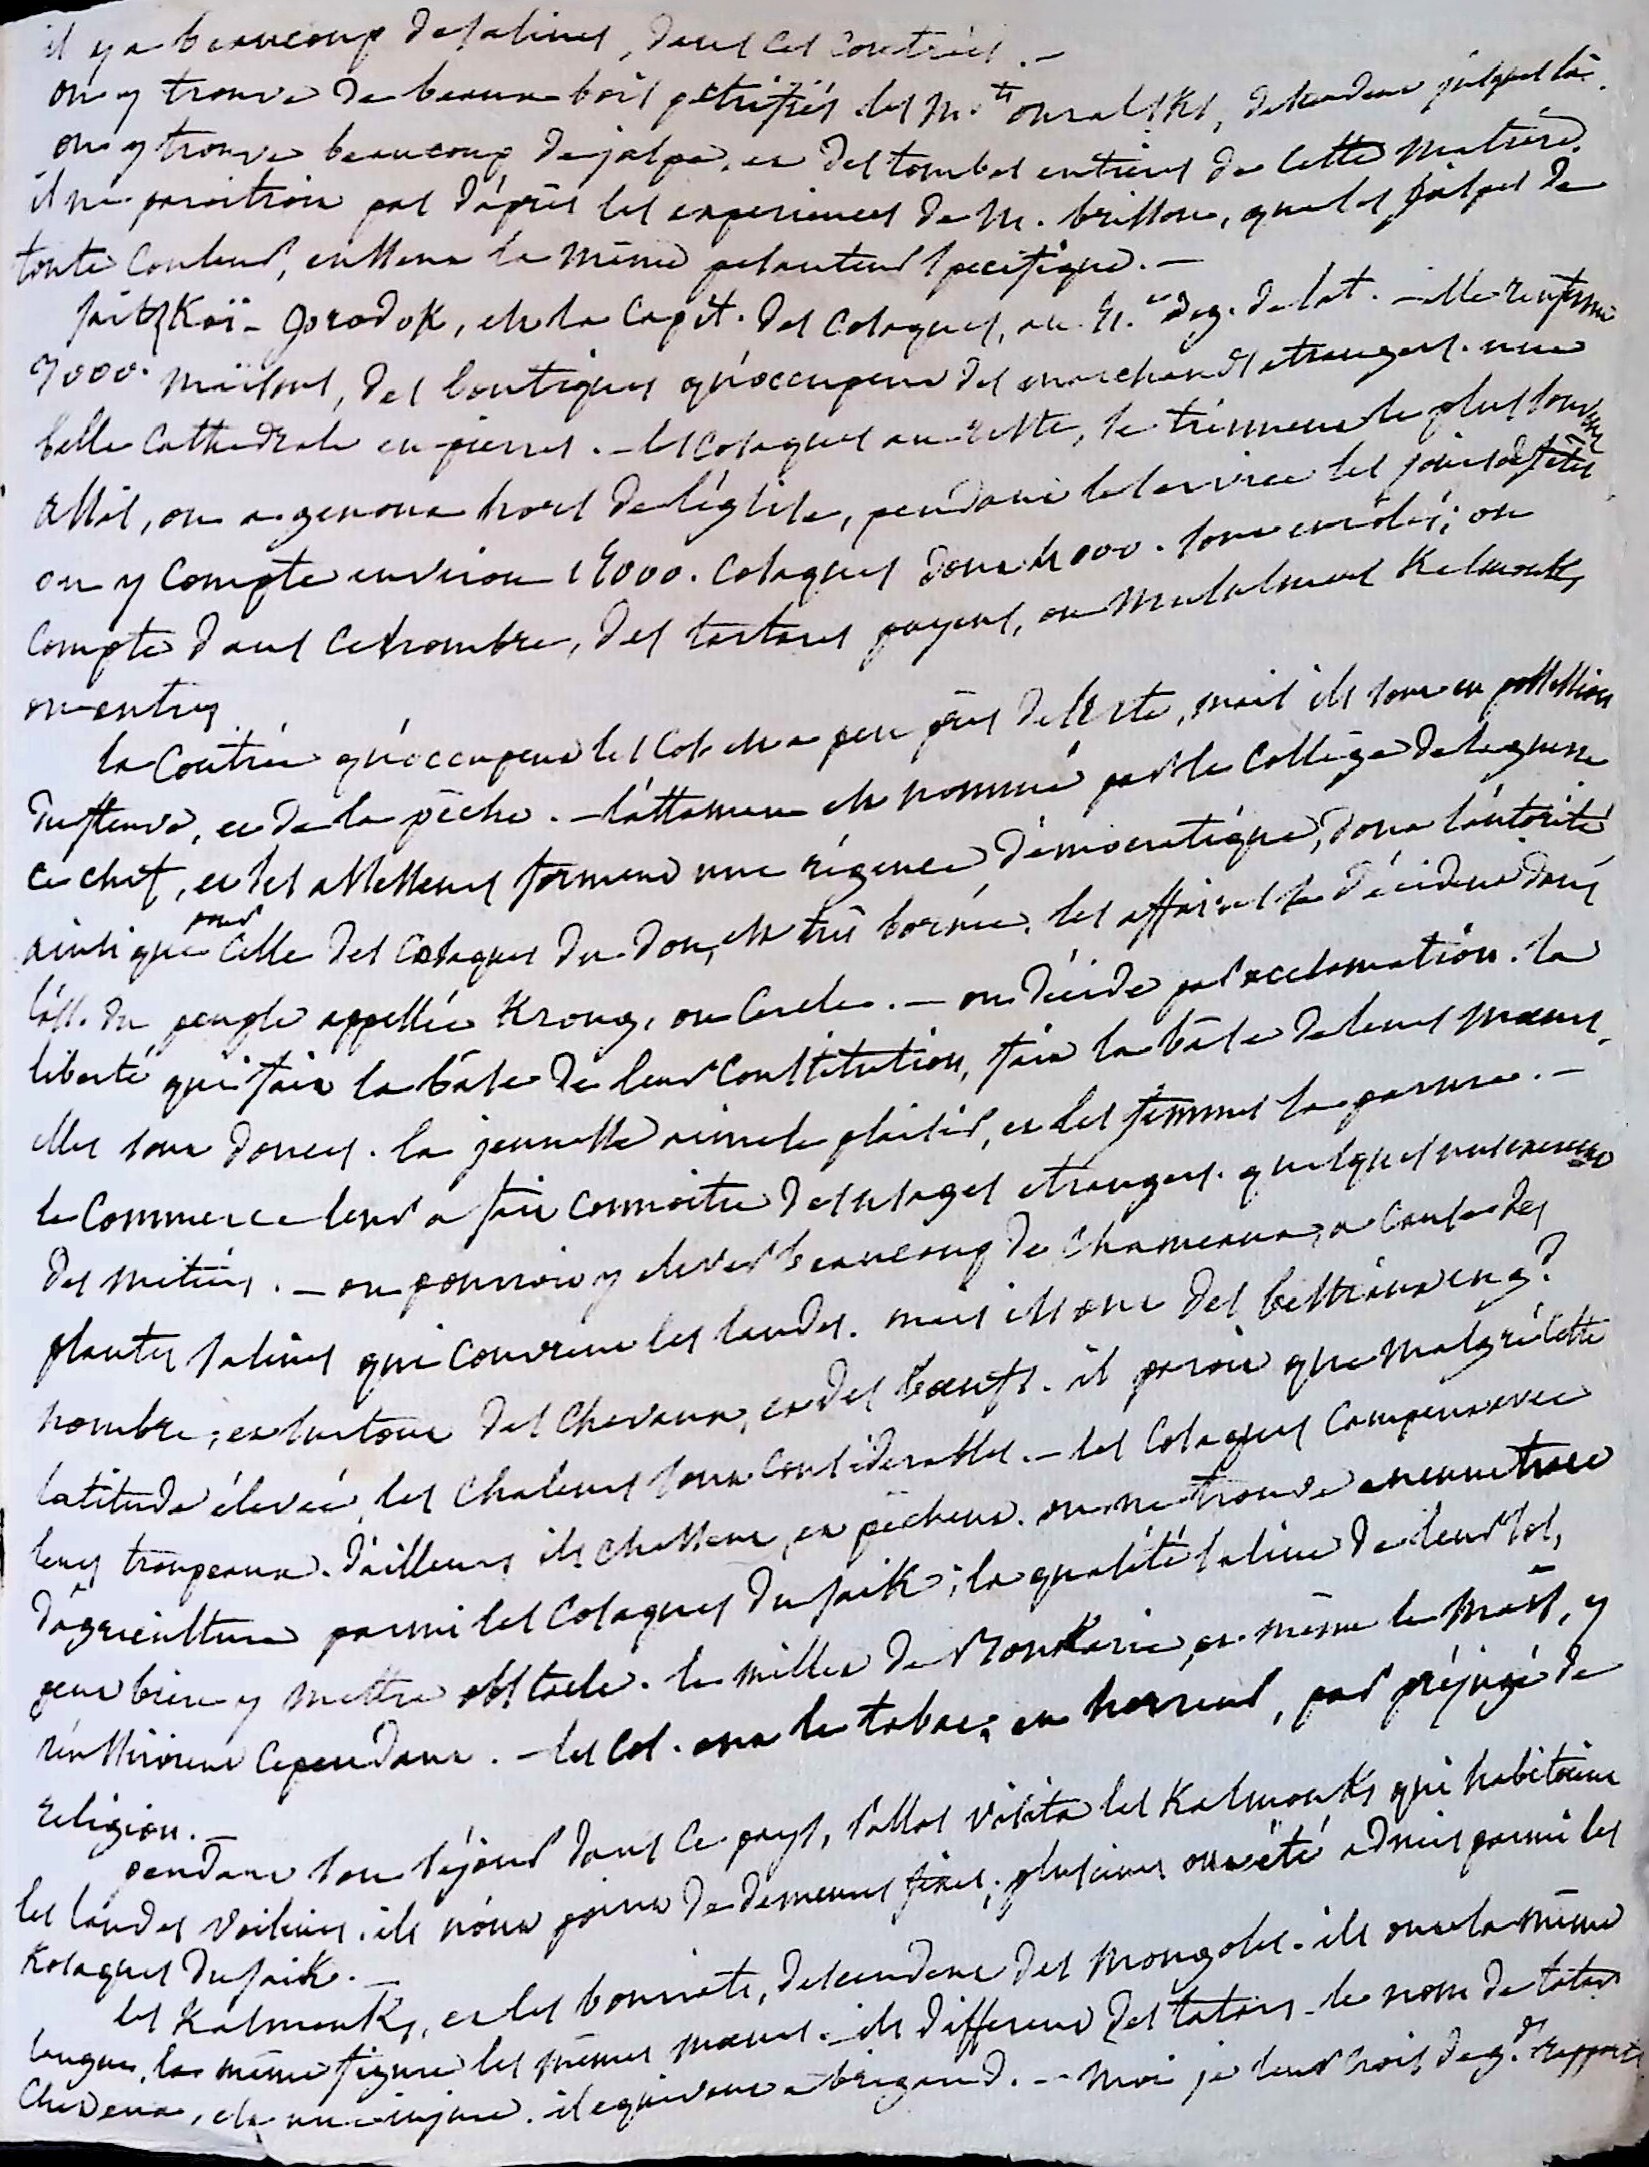 il y a beaucoup de salines, dans ces contrées. -
on y trouve de beaux bois petrifiés les m.ts ouralsks, s'etendent jusques là.
on y trouve beaucoup de jaspe, et des tombes entieres de cette matière.
il ne paroitroit pas d'après les experiences de M. brisson, que les jaspes de
toute couleur, eussent la même pesanteur specifique. -
jaitzkoï-gorodok, est la capit. des cosaques, au 51.e deg. de lat. - elle renferme
3000. maisons, des boutiques qu'occupent des marchands etrangers. une
belle cathedrale en pierres. - les cosaques au reste, se tiennent le plus souvent
assis, ou a genoux hors de l'église, pendant le service les jours de fêtes
on y compte environ 15000. cosaques dont 4000. sont enrôlés; on
compte dans ce nombre, des tartares payens, ou musulmans Kalmouks
ou autres
la contrée qu'occupent les cos. est a peu près deserte, mais ils sont en possession
du fleuve, et de la pêche. - l'attaman est nommé par le collège de la guerre
ce chef, et ses assesseurs forment une régence démocratique, dont l'autorité
ainsi que pour celle des cosaques du don, est très bornée. les affaires se décident dans
l'ass. du peuple appellée Kroug, ou cercle. - on décide par acclamation. la
liberté qui fait la bâse de leur constitution, fait la bâse de leurs mœurs,
elles sont douces. la jeunesse aime le plaisir, et les femmes la parure. -
le commerce leur a fait connoître des usages etrangers. quelques uns exercent
des métiers. - on pourroit y elever beaucoup de chameaux, a cause des
plantes salines qui couvrent les landes. mais ils ont des bestiaux en g.d
nombre; et surtout des chevaux, et des bœufs. il paroit que malgré cette
latitude élevée, les chaleurs sont considerables. - les cosaques campent avec
leurs troupeaux. d'ailleurs ils chassent, et pêchent. on ne trouve aucune trace
d'agriculture parmi les cosaques du jaik; la qualité saline de leur sol,
peut bien y mettre obstacle. le millet de Boukarie, et même le maïs, y
réussiroient cependant. - les cos. ont le tabac, en horreur, par préjugé de
religion. -
pendant son séjour dans ce pays, Pallas visita les Kalmouks qui habitoient
les landes voisines. ils n'ont point de demeures fixes; plusieurs ont été admis parmi les
Kosaques du jaik. -
les Kalmouks, et les bouriats, descendent des mongols. ils ont la même
langue, la même figure les mêmes mœurs. ils different des tatars. le nom de tatars
chez eux, est une injure. il equivaut a brigand. - moi je leur crois de g.ds rapports